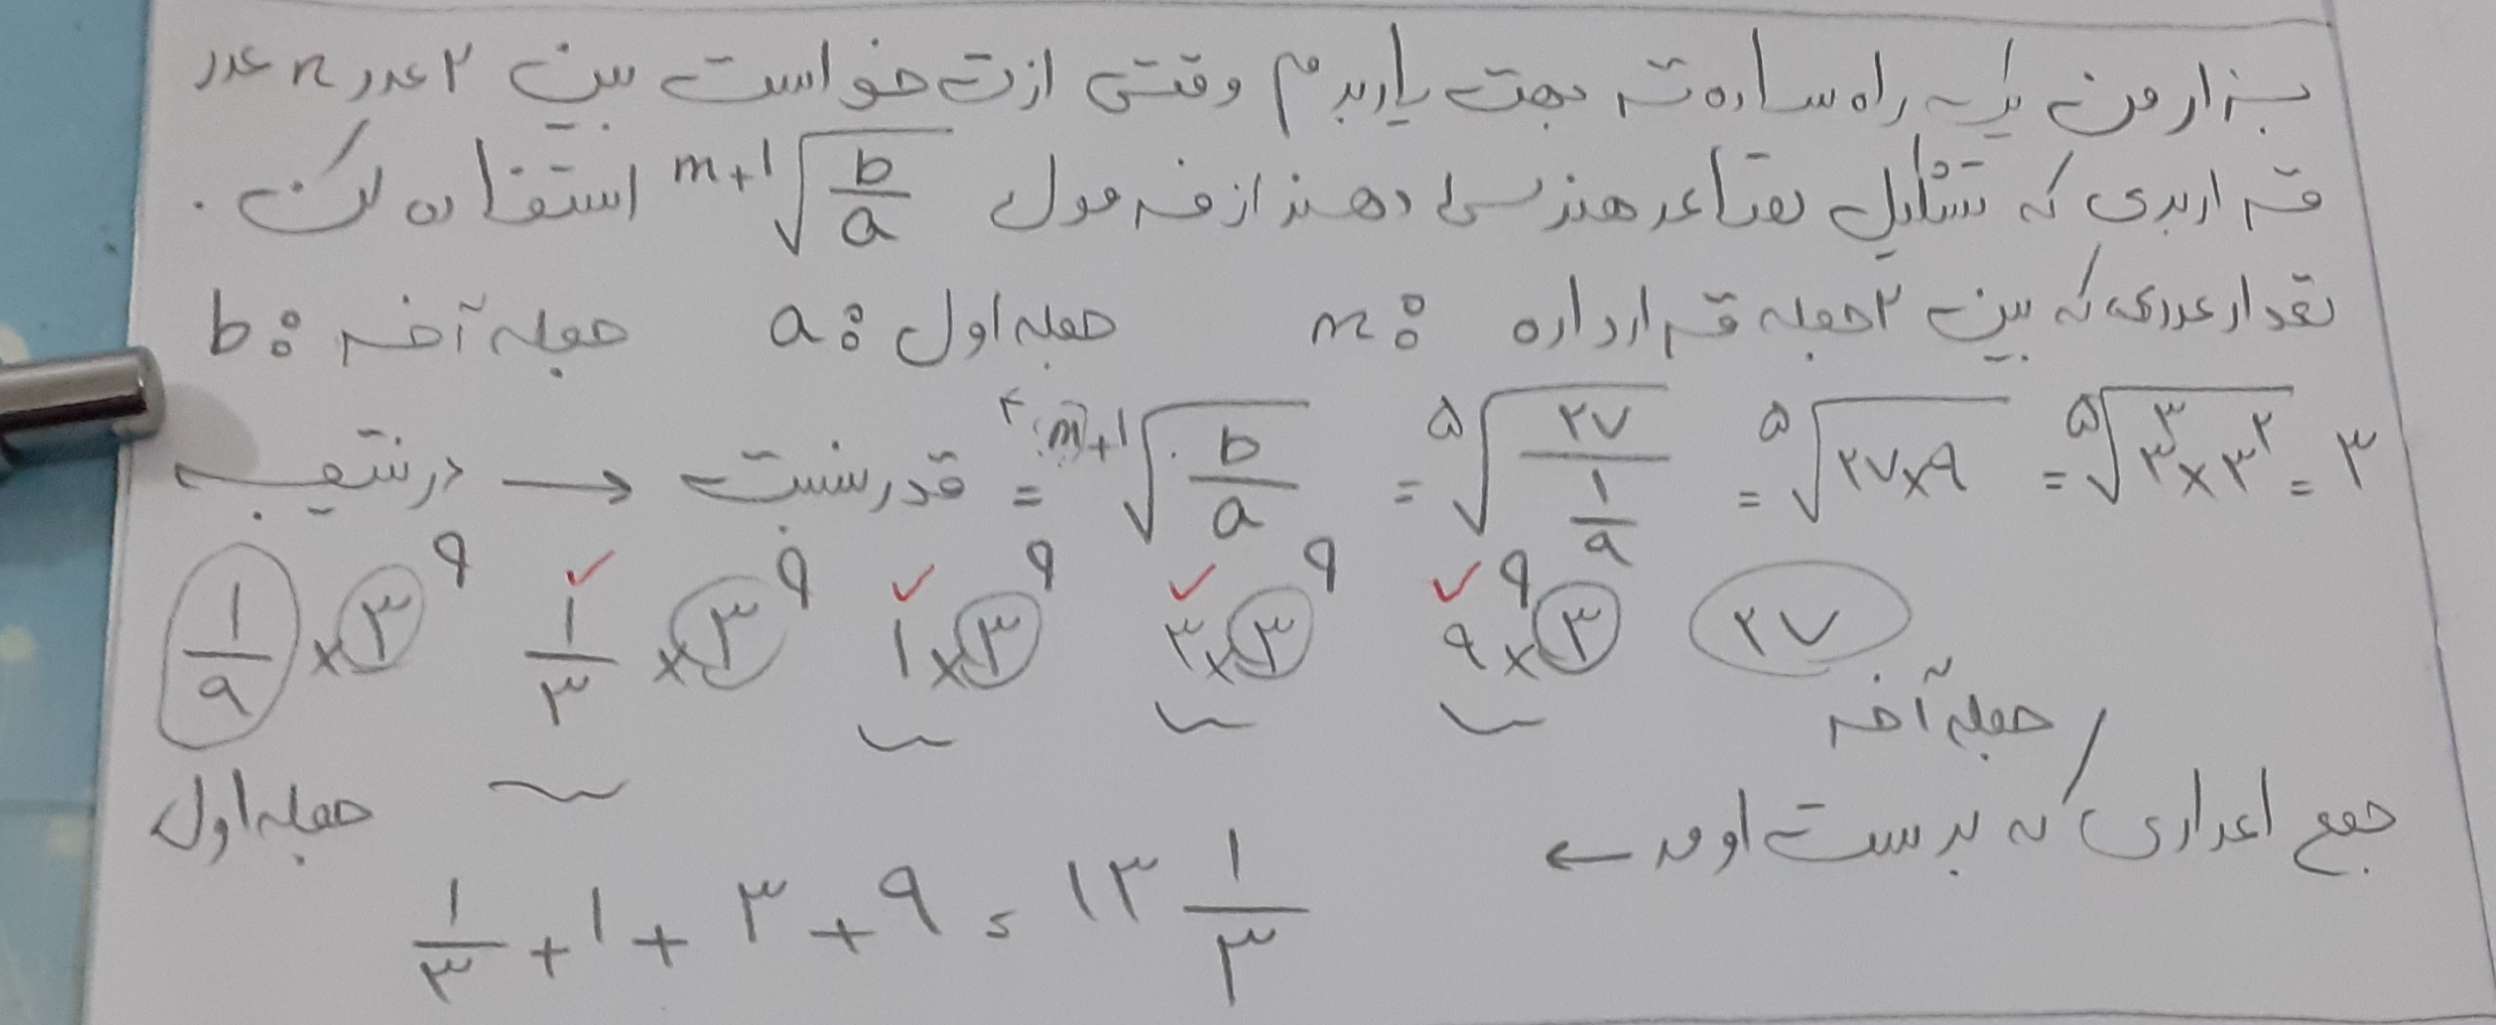 بزار من یک راه ساده تر بهت یاد بدم وقتی ازت خواست بین ۲ عدد n عدد
قرار بدی که تشکیل دنباله هندسی دهند از فرمول m+1√(b/a) استفاده کن .
تعداد عددی که بین ۲ جمله قرار داره : m جمله اول : a جمله آخر : b
در نتیجه → قدرنسبت = m+1√(b/a) = ۵√(۲۷/(۱/۹)) = ۵√(۲۷×۹) = ۵√(۳^۳×۳^۲) = ۳
۱/۹ ×۳ ۱/۳ ×۳ ۱×۳ ۳×۳ ۹×۳ ۲۷
جمله اول جمله آخر
جمع اعدادی که بدست اومد ←
۱/۳ + ۱ + ۳ + ۹ = ۱۳ ۱/۳